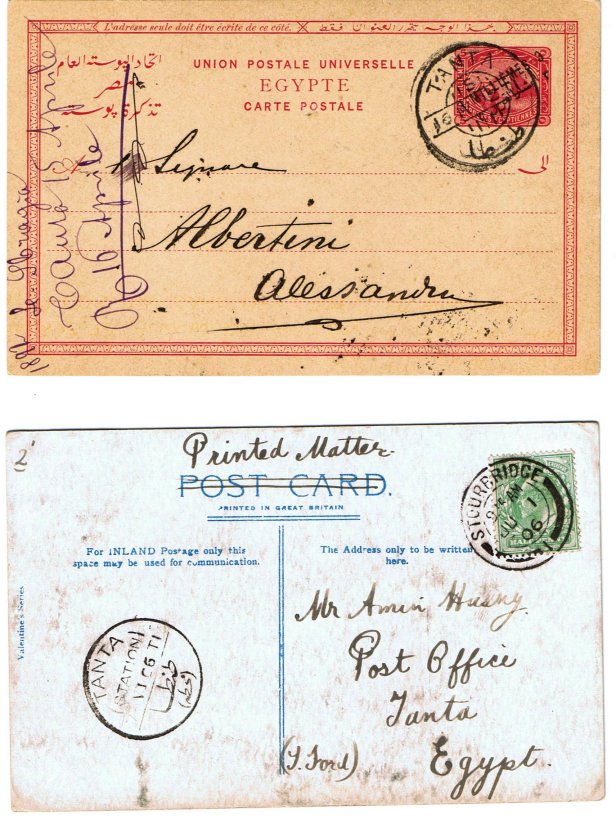 L'adresse seule doit être écrite de ce côté.
هذا الوجه يتحرر العنوان فقط
اتحاد البوستة العام
مصر
تذكرة بوستة
UNION POSTALE UNIVERSELLE
EGYPTE
CARTE POSTALE
TANTA
طنطا
الى
Signore
Albertini
Alessandria
15 Aprile
16 Aprile
Printed Matter.
POST CARD.
PRINTED IN GREAT BRITAIN
STOURBRIDGE
JU 1
06
For INLAND Postage only this
space may be used for communication.
The Address only to be written
here.
Valentine's Series
TANTA
STATION
Mr Amin Husny.
Post Office
Tanta
Egypt.
2'